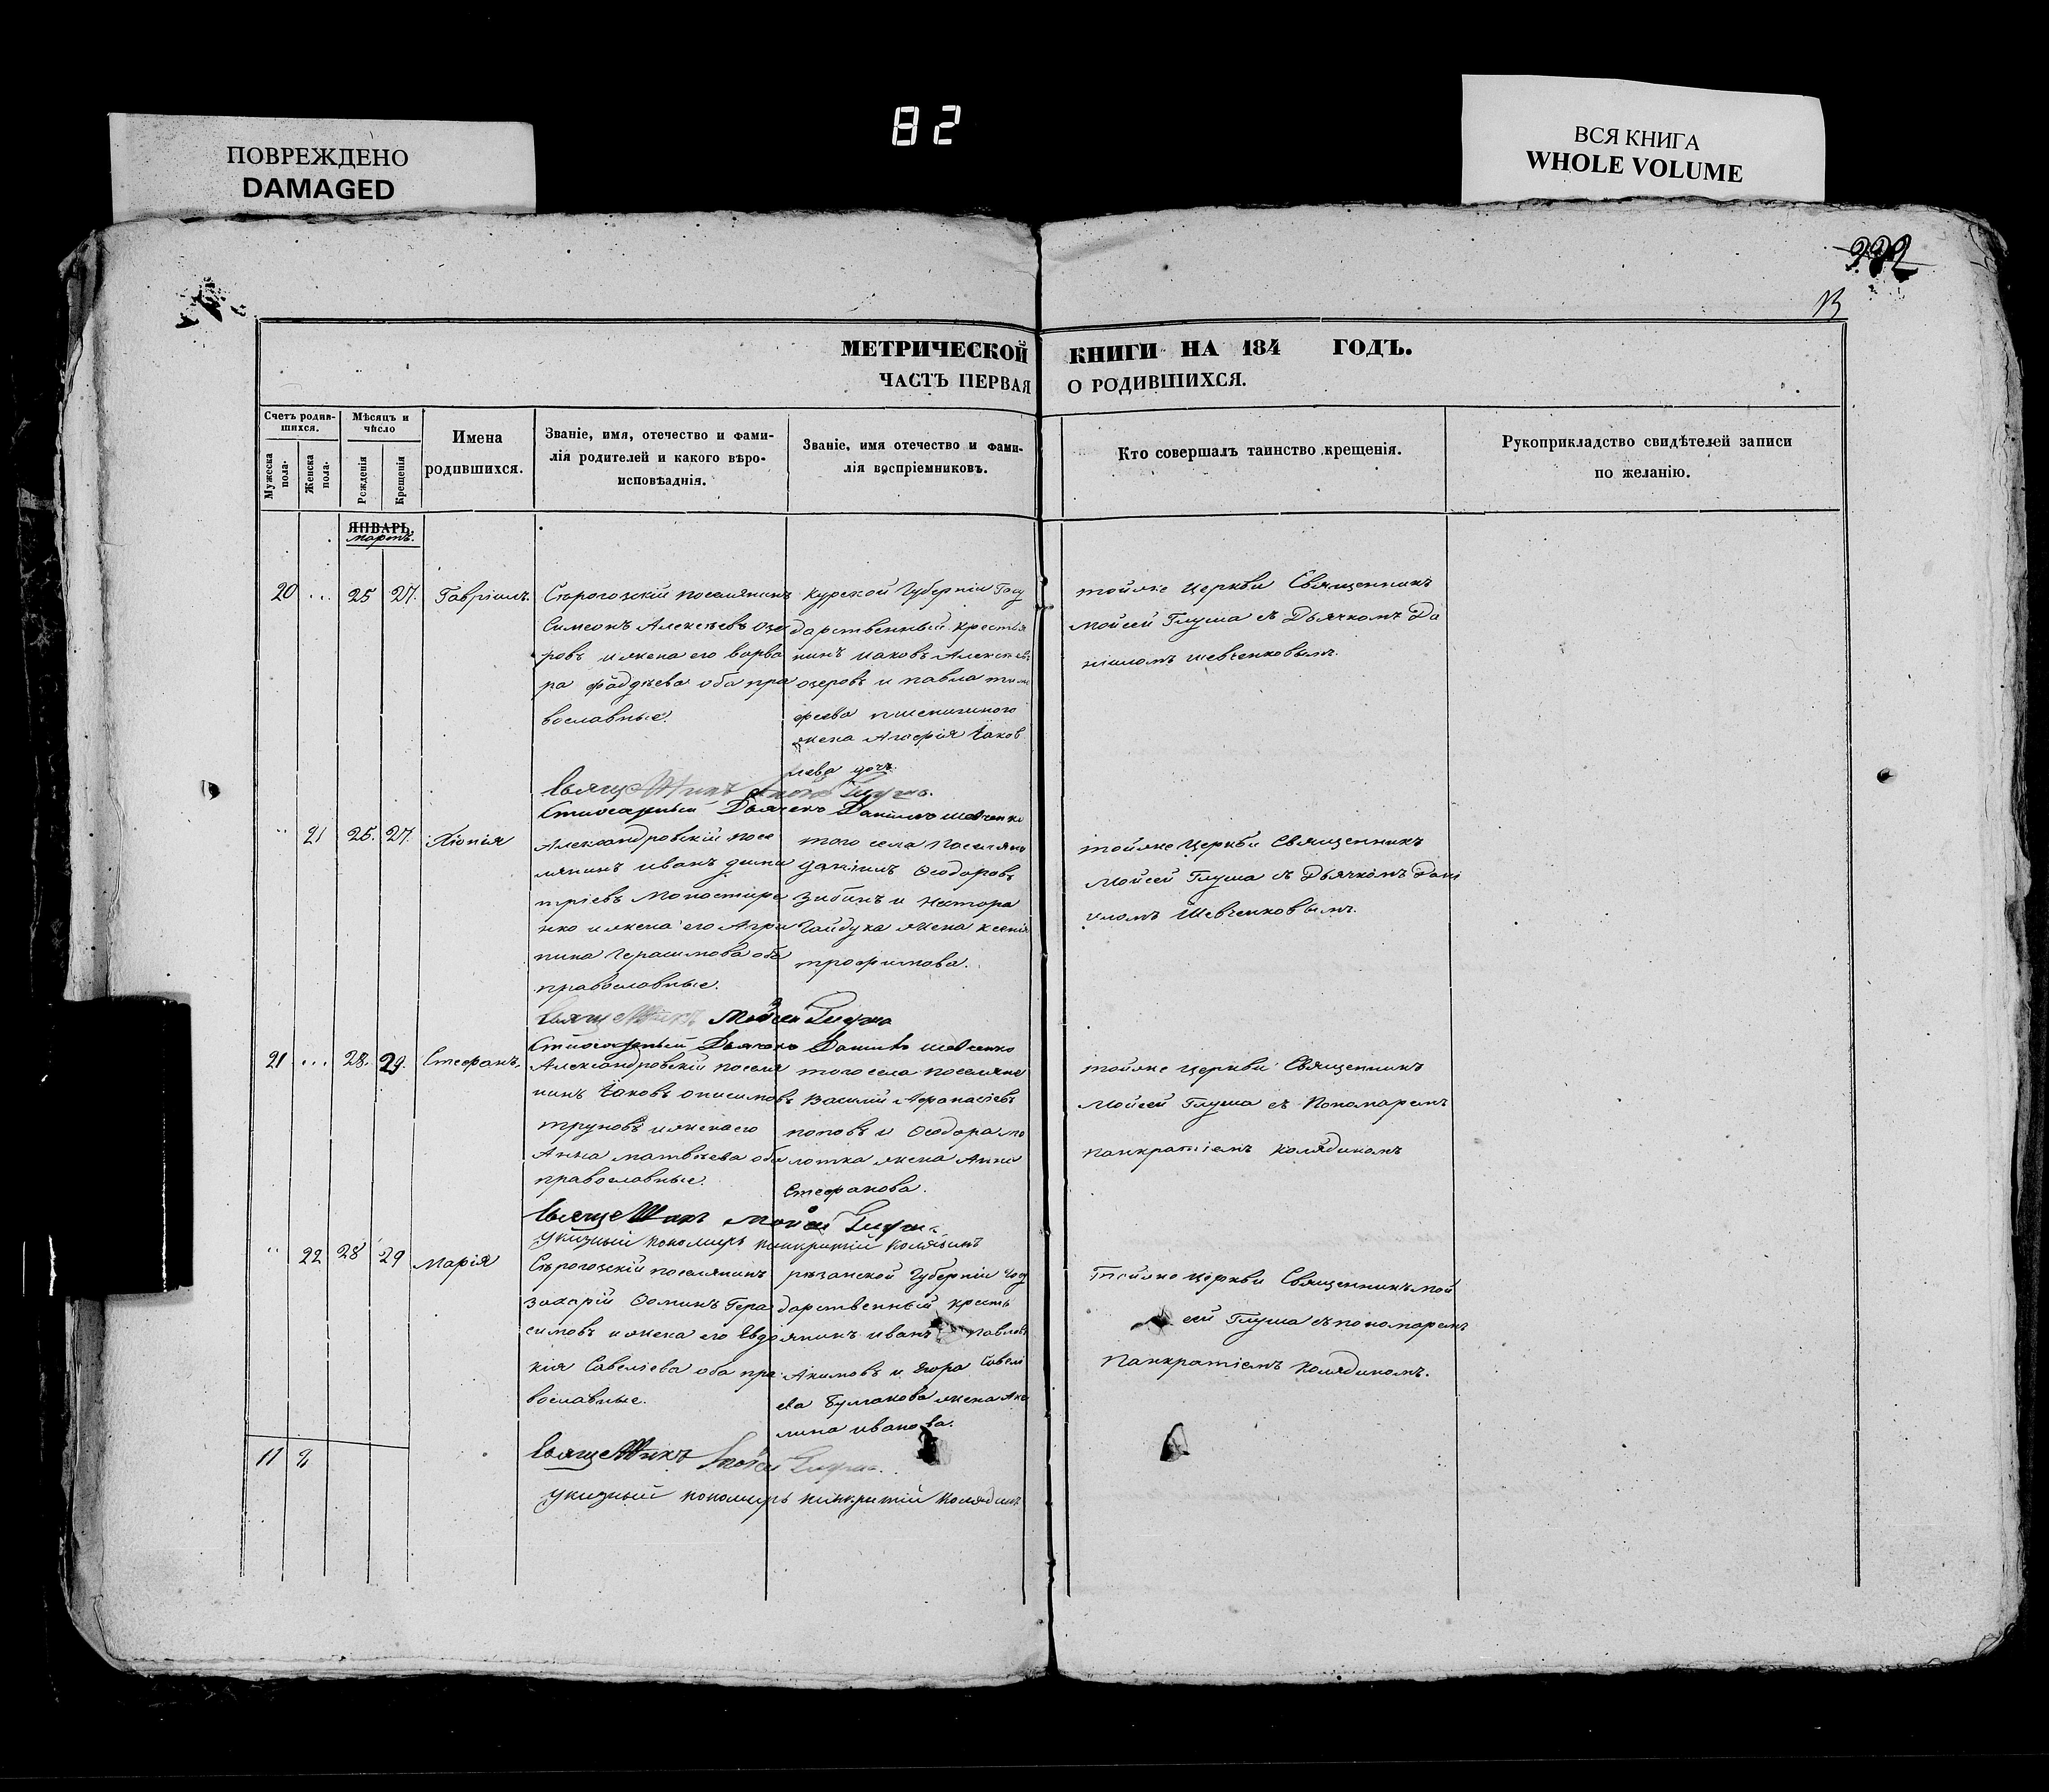 82
ПОВРЕЖДЕНО
DAMAGED
ВСЯ КНИГА
WHOLE VOLUME
МЕТРИЧЕСКОЙ КНИГИ НА 184 ГОДЪ.
ЧАСТЬ ПЕРВАЯ О РОДИВШИХСЯ.
Счетъ родив-
шихся.
Мужеска
пола.
Женска
пола.
Мѣсяцъ и
число
Рожденія
Крещенія
Имена
родившихся.
Званіе, имя, отечество и фами-
лія родителей и какого вѣро-
исповѣданія.
Званіе, имя отечество и фами-
лія воспріемниковъ.
Кто совершалъ таинство крещенія.
Рукоприкладство свидѣтелей записи
по желанію.
ЯНВАРЬ.
мартъ.
20 ... 25 27. Гавріилъ.
Сѣрогозскій поселянинъ
Симеонъ Алексѣевъ Озе
ровъ и жена его Варва
ра Фаддѣева оба пра
вославные.
Курской Губерніи Госу
дарственный крестья
нинъ Іаковъ Алексѣевъ
Озеровъ и павла тимо
феева пшеничного
жена Агафія Іаков
лева дочь.
тойже Церкви Священникъ
Мойсей Глуша съ Дьячкомъ Да
ніиломъ Шевченковымъ.
Священникъ Мойсей Глуша.
Дьячекъ Даніилъ Шевченко
" 21 25. 27. Хіонія
Александровскій посе
лянинъ Иванъ дими
тріевъ Монастыре
нко и жена его Агри
пина Герасимова оба
православные.
того села Поселянинъ
даніилъ Феодоровъ
Зибинъ и Нестора
Гайдука жена Ксенія
трофимова.
тойже Церкви Священникъ
Мойсей Глуша съ Дьячкомъ Дані
иломъ Шевченковымъ.
Священникъ Мойсей Глуша
Дьячекъ Даніилъ Шевченко
21 ... 28. 29. Стефанъ.
Александровскій поселя
нинъ Іаковъ Онисимовъ
труновъ и жена его
Анна матвѣева оба
православные.
того села поселяни
Василій Афанасіевъ
поповъ и Феодора мо
лотка жена Анна
Стефанова.
тойже Церкви Священникъ
Мойсей Глуша съ Пономаремъ
панкратіемъ Колядиномъ
Священникъ Мойсей Глуша
Указный пономарь панкратій Колядинъ
" 22 28 29 Марія
Сѣрогозскій поселянинъ
Захарій Фоминъ Гера
симовъ и жена его Евдо
кія Савеліева оба пра
вославные.
рязанской Губерніи Госу
дарственный кресть
янинъ иванъ павловъ
Акимовъ и Егора Савелі
ева Булгакова жена Аку
лина иванова.
Тойже Церкви Священникъ Мой
сей Глуша съ пономаремъ
Панкратіемъ Колядиномъ.
11 8
Священникъ Мойсей Глуша.
Указный пономарь панкратій Колядинъ